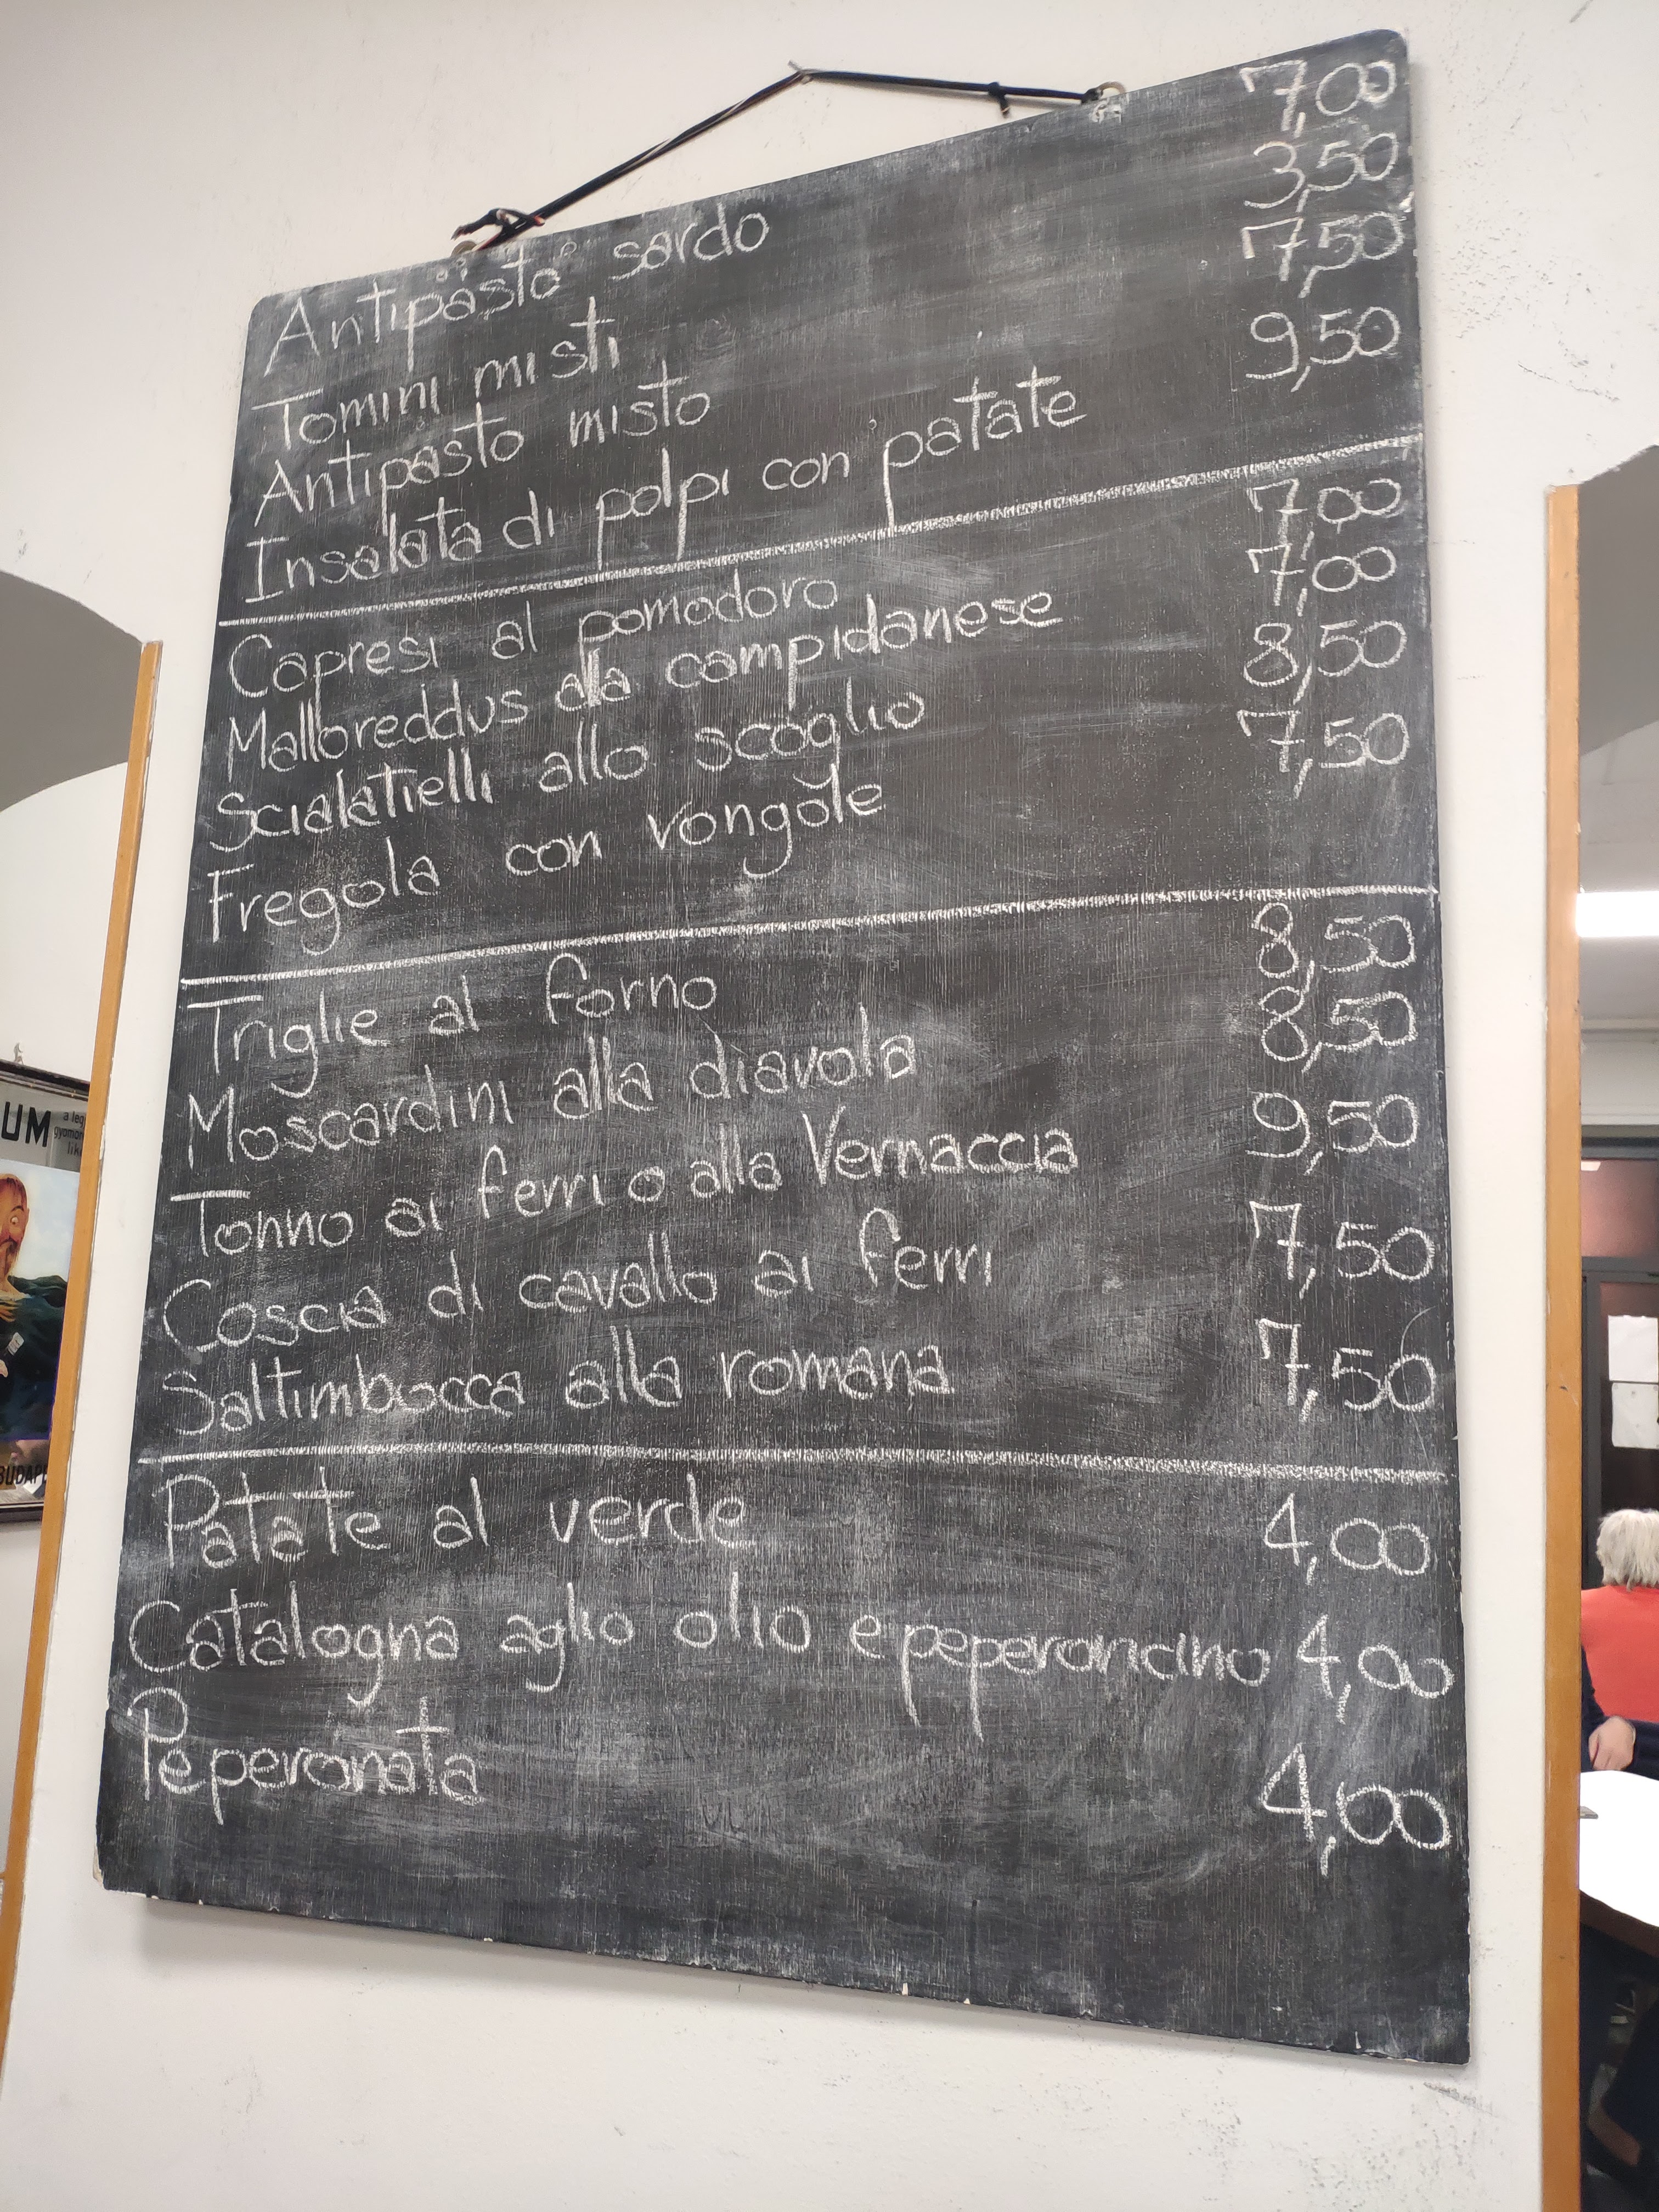 Antipasto sardo 7,00
Tomini misti 3,50
Antipasto misto 7,50
Insalata di polpi con patate 9,50
Capresi al pomodoro 7,00
Malloreddus alla campidanese 7,00
Scialatielli allo scoglio 8,50
Fregola con vongole 7,50
Triglie al forno 8,50
Moscardini alla diavola 8,50
Tonno ai ferri o alla Vernaccia 9,50
Coscia di cavallo ai ferri 7,50
Saltimbocca alla romana 7,50
Patate al verde 4,00
Catalogna aglio olio e peperoncino 4,00
Peperonata 4,00
UM
a leg